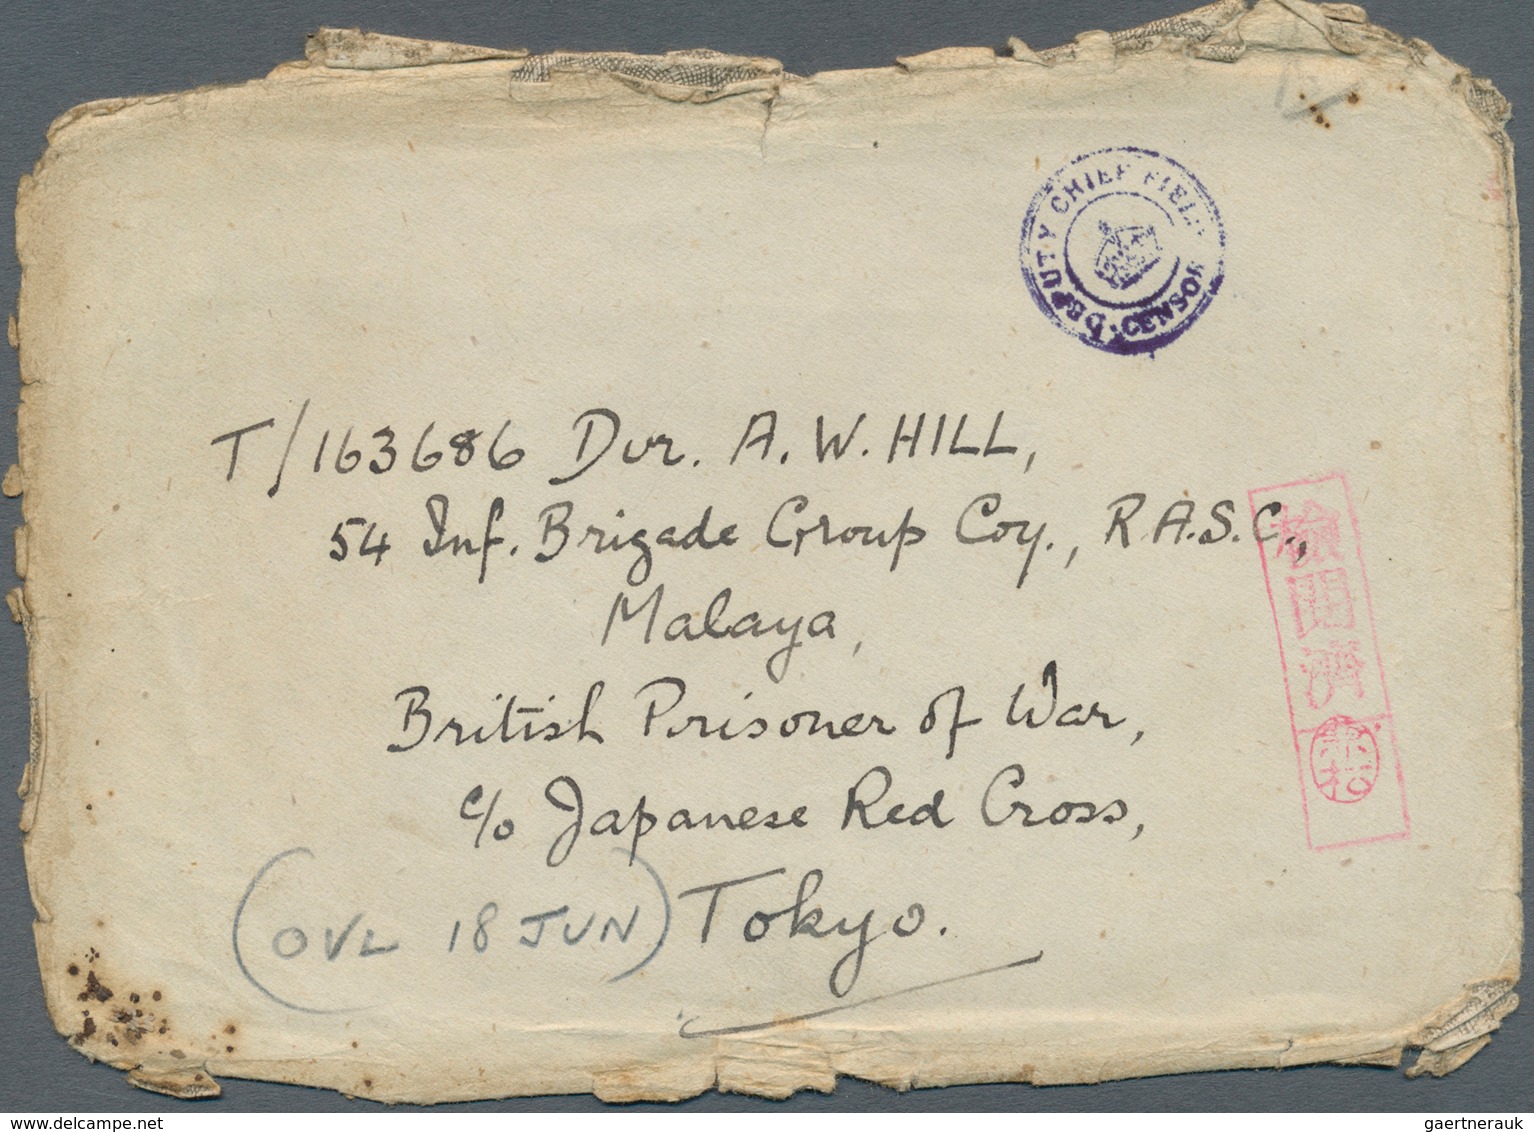 DEPUTY CHIEF FIELD CENSOR
T/163686 Dvr. A. W. HILL,
54 Inf. Brigade Group Coy., R.A.S.C.,
Malaya,
British Prisoner of War,
c/o Japanese Red Cross,
Tokyo.
(OVL 18 JUN)
檢閲濟
delcampe.net
gaertnerauk